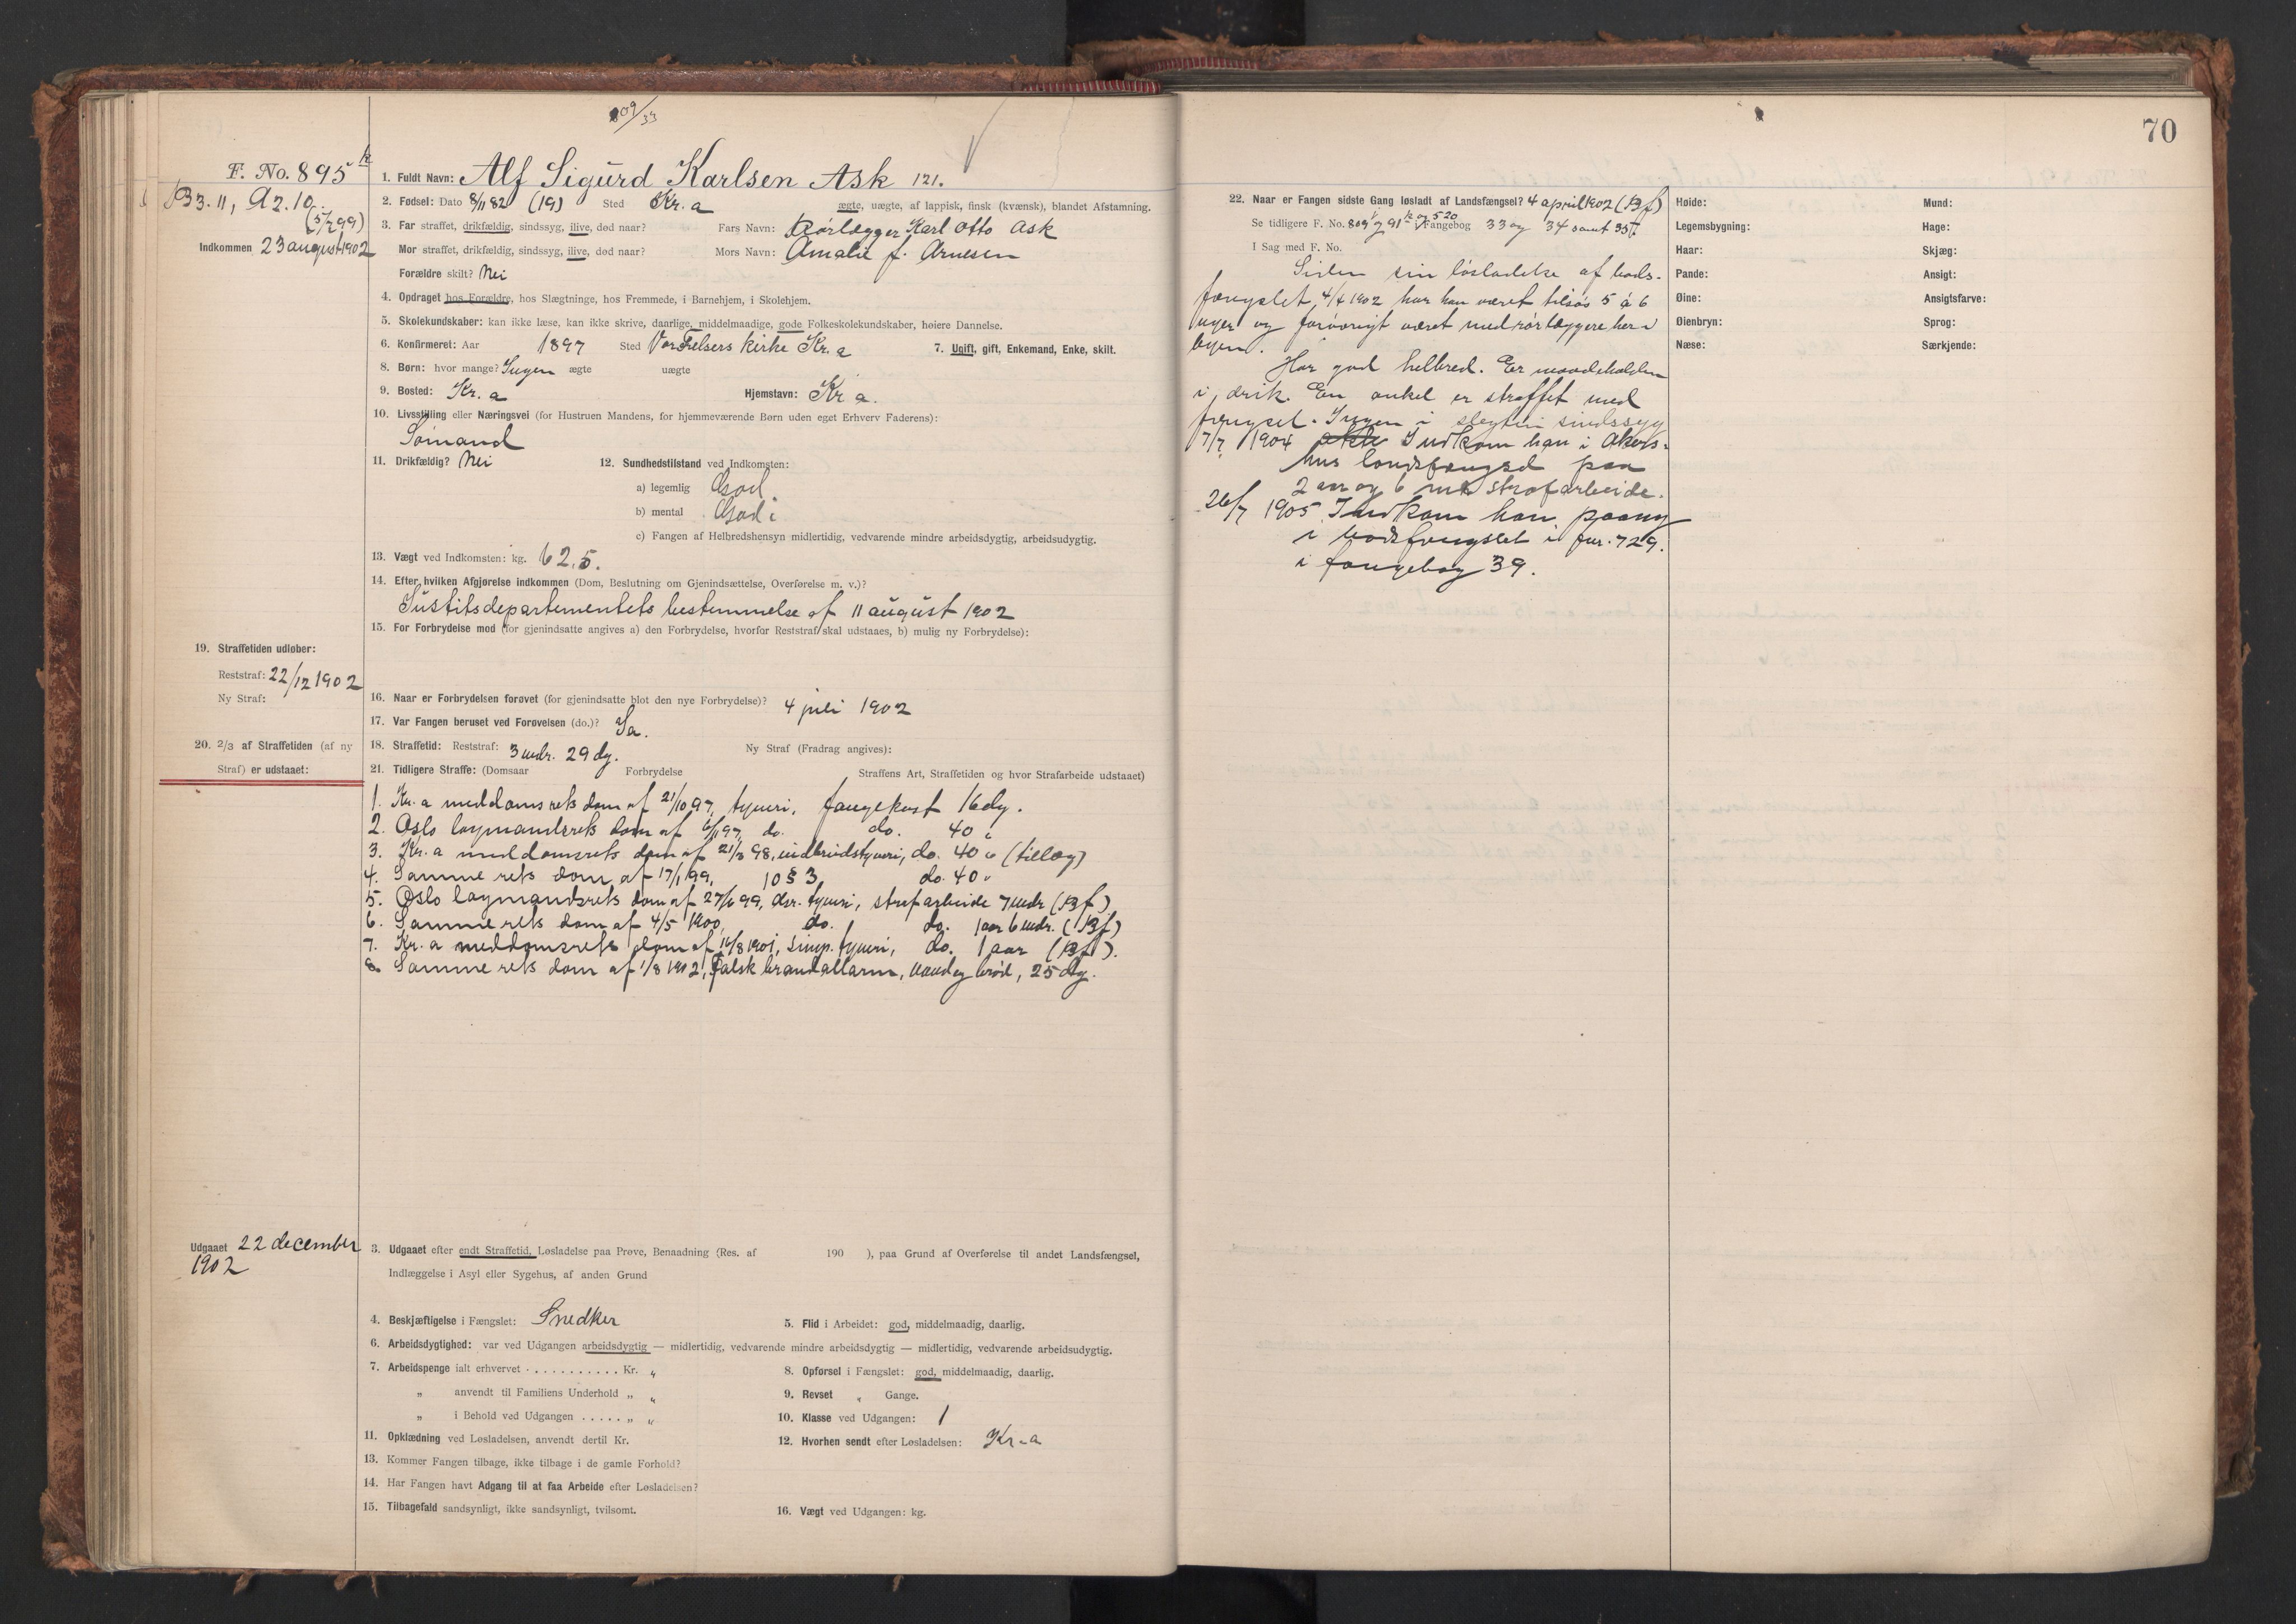 809/33
F. No. 895 k
1. Fuldt Navn: Alf Sigurd Karlsen Ask 121.
B3.11, A2.10.
(5/7 99)
2. Fødsel: Dato 8/11 82 (19) Sted Kr.a ægte, uægte, af lappisk, finsk (kvænsk), blandet Afstamning.
3. Far straffet, drikfældig, sindssyg, ilive, død naar? Fars Navn: Rörlægger Karl Otto Ask
Indkommen 23 august 1902
Mor straffet, drikfældig, sindssyg, ilive, død naar? Mors Navn: Amalie f. Arnesen
Forældre skilt? Nei
4. Opdraget hos Forældre, hos Slægtninge, hos Fremmede, i Barnehjem, i Skolehjem.
5. Skolekundskaber: kan ikke læse, kan ikke skrive, daarlige, middelmaadige, gode Folkeskolekundskaber, høiere Dannelse.
6. Konfirmeret: Aar 1897 Sted Vor Frelsers kirke Kr.a 7. Ugift, gift, Enkemand, Enke, skilt.
8. Børn: hvor mange? Ingen ægte uægte
9. Bosted: Kr.a Hjemstavn: Kr a.
10. Livsstilling eller Næringsvei (for Hustruen Mandens, for hjemmeværende Børn uden eget Erhverv Faderens):
Sömand
11. Drikfældig? Nei 12. Sundhedstilstand ved Indkomsten:
a) legemlig God.
b) mental God.
c) Fangen af Helbredshensyn midlertidig, vedvarende mindre arbeidsdygtig, arbeidsudygtig.
13. Vægt ved Indkomsten: kg. 62,5.
14. Efter hvilken Afgjørelse indkommen (Dom, Beslutning om Gjenindsættelse, Overførelse m. v.)?
Justitsdepartementets bestemmelse af 11 august 1902
15. For Forbrydelse mod (for gjenindsatte angives a) den Forbrydelse, hvorfor Reststraf skal udstaaes, b) mulig ny Forbrydelse):
19. Straffetiden udløber:
Reststraf: 22/12 1902
Ny Straf:
16. Naar er Forbrydelsen forøvet (for gjenindsatte blot den nye Forbrydelse)? 4 juli 1902
17. Var Fangen beruset ved Forøvelsen (do.)? Ja.
20. 2/3 af Straffetiden (af ny
Straf) er udstaaet:
18. Straffetid: Reststraf: 3 mdr. 29 dg. Ny Straf (Fradrag angives):
21. Tidligere Straffe: (Domsaar Forbrydelse Straffens Art, Straffetiden og hvor Strafarbeide udstaaet)
1. Kr.a meddomsrets dom af 21/10 97, tyveri, fangekost 16 dg.
2. Oslo lagmandsrets dom af 6/11 97, do. do. 40 "
3. Kr.a meddomsrets dom af 21/3 98, indbrudstyveri, do. 40 " (tillæg)
4. Samme rets dom af 17/1 99, 10 § 3, do. 40 "
5. Oslo lagmandsrets dom af 27/6 99, do. tyveri, strafarbeide 7 mdr (Bf)
6. Samme rets dom af 4/5 1900, do. do. 1 aar 6 mdr. (Bf)
7. Kr.a meddomsrets dom af 16/8 1901, simp. tyveri, do. 1 aar (Bf).
8. Samme rets dom af 1/8 1902, falsk brandallarm, vand og brød, 25 dg.
Udgaaet 22 december
1902
3. Udgaaet efter endt Straffetid, Løsladelse paa Prøve, Benaadning (Res. af 190 ), paa Grund af Overførelse til andet Landsfængsel,
Indlæggelse i Asyl eller Sygehus, af anden Grund
4. Beskjæftigelse i Fængslet: Snedker 5. Flid i Arbeidet: god, middelmaadig, daarlig.
6. Arbeidsdygtighed: var ved Udgangen arbeidsdygtig — midlertidig, vedvarende mindre arbeidsdygtig — midlertidig, vedvarende arbeidsudygtig.
7. Arbeidspenge ialt erhvervet . . . . . . . . . . . Kr. " 8. Opførsel i Fængslet: god, middelmaadig, daarlig.
" anvendt til Familiens Underhold " " 9. Revset " Gange.
" i Behold ved Udgangen . . . . . " " 10. Klasse ved Udgangen: 1
11. Opklædning ved Løsladelsen, anvendt dertil Kr. 12. Hvorhen sendt efter Løsladelsen: Kr.a
13. Kommer Fangen tilbage, ikke tilbage i de gamle Forhold?
14. Har Fangen havt Adgang til at faa Arbeide efter Løsladelsen?
15. Tilbagefald sandsynligt, ikke sandsynligt, tvilsomt. 16. Vægt ved Udgangen: kg.
70
22. Naar er Fangen sidste Gang løsladt af Landsfængsel? 4 april 1902 (Bf)
Se tidligere F. No. 809 og 91 k og 520 i Fangebog 33 og 34 samt 35
I Sag med F. No.
Siden sin løsladelse af bods-
fængslet 4/4 1902 har han været tilsøs 5 à 6
uger og forövrigt været med rörlæggere her i
byen.
Har god helbred. Er maadeholden
i drik. En onkel er straffet med
fængsel. Ingen i slegten sindssyg
7/7 1904 Indkom han i Akers-
hus landsfængsel paa
2 aar og 6 mdr strafarbeide.
26/7 1905 Indkom han paany
i bodsfængslet i fnr. 729.
i fangebog 39.
Høide:
Legemsbygning:
Haar:
Pande:
Øine:
Øienbryn:
Næse:
Mund:
Hage:
Skjæg:
Ansigt:
Ansigtsfarve:
Sprog:
Særkjende: